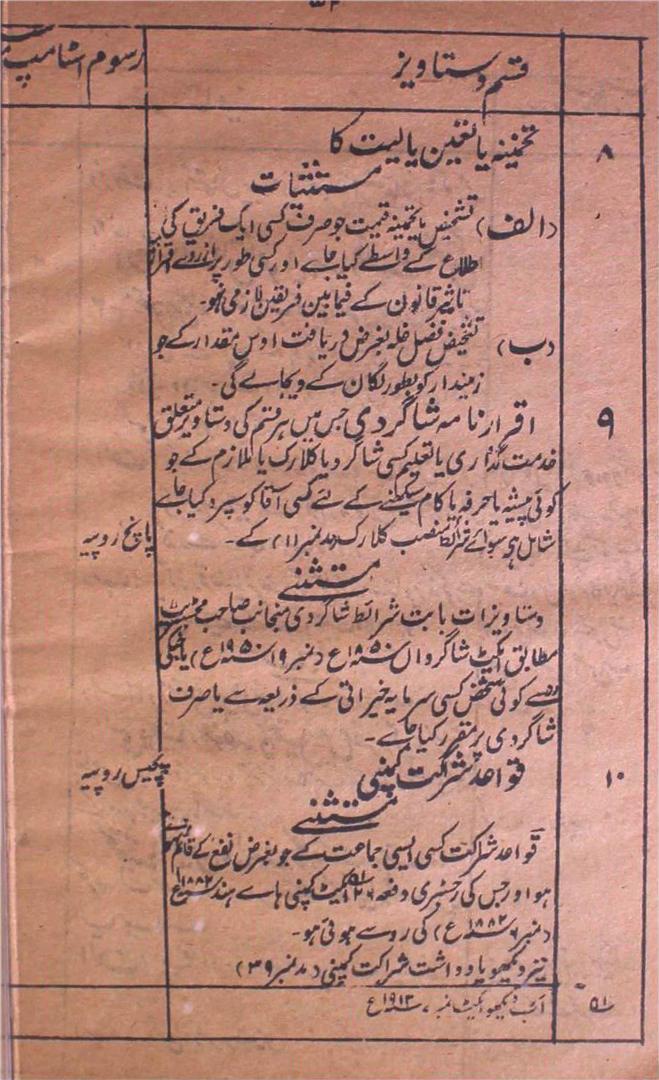 ۵۲
قسم دستاویز
رسوم اسٹامپ
۸
تخمینہ یا تعین مالیت کا
مستثنیات
(الف) تشخیص یا تخمینہ قیمت جو صرف کسی ایک فریق کی
اطلاع کے واسطے کیا جاے اور کسی طور پر ازروے
تاثیر قانون کے فیمابین فریقین لازمی نہو۔
(ب) تشخیص فصل غلہ بغرض دریافت اوس مقدار کے جو
زمیندار کو بطور لگان کے دیجاے گی۔
۹
اقرار نامہ شاگردی جس میں ہر قسم کی دستاویز متعلق
خدمت گذاری یا تعلیم کسی شاگرد یا کلارک یا ملازم کے جو
کوئی پیشہ یا حرفہ یا کام سیکھنے کے لئے کسی آقا کو سپرد کیا جاے
شامل ہی سواے شرائط منصب کلارک (مد نمبر ۱۱) کے۔
پانچ روپیہ
مستثنے
دستاویزات بابت شرائط شاگردی منجانب صاحب مجسٹریٹ
مطابق ایکٹ شاگردان ۱۸۵۰ سنہ ع (نمبر ۱۹ سنہ ۱۹۵۰ ع) یا جسکی
روسے کوئی شخص کسی سرمایہ خیراتی کے ذریعہ سے یا صرف
شاگردی پر مقرر کیا جاے۔
۱۰
قواعد شراکت کمپنی
پچیس روپیہ
مستثنے
قواعد شراکت کسی ایسی جماعت کے جو بغرض نفع کے قائم
ہو اور جس کی رجسٹری دفعہ ۲۶ ایکٹ کمپنی ہاے ہند سنہ ۱۸۸۲ ع
(نمبر ۶ سنہ ۱۸۸۲ ع) کی رو سے ہوئی ہو۔
نیز دیکھو یادداشت شراکت کمپنی (مد نمبر ۳۹)
۵۱
اب دیکھو ایکٹ نمبر ۷ سنہ ۱۹۱۳ ع